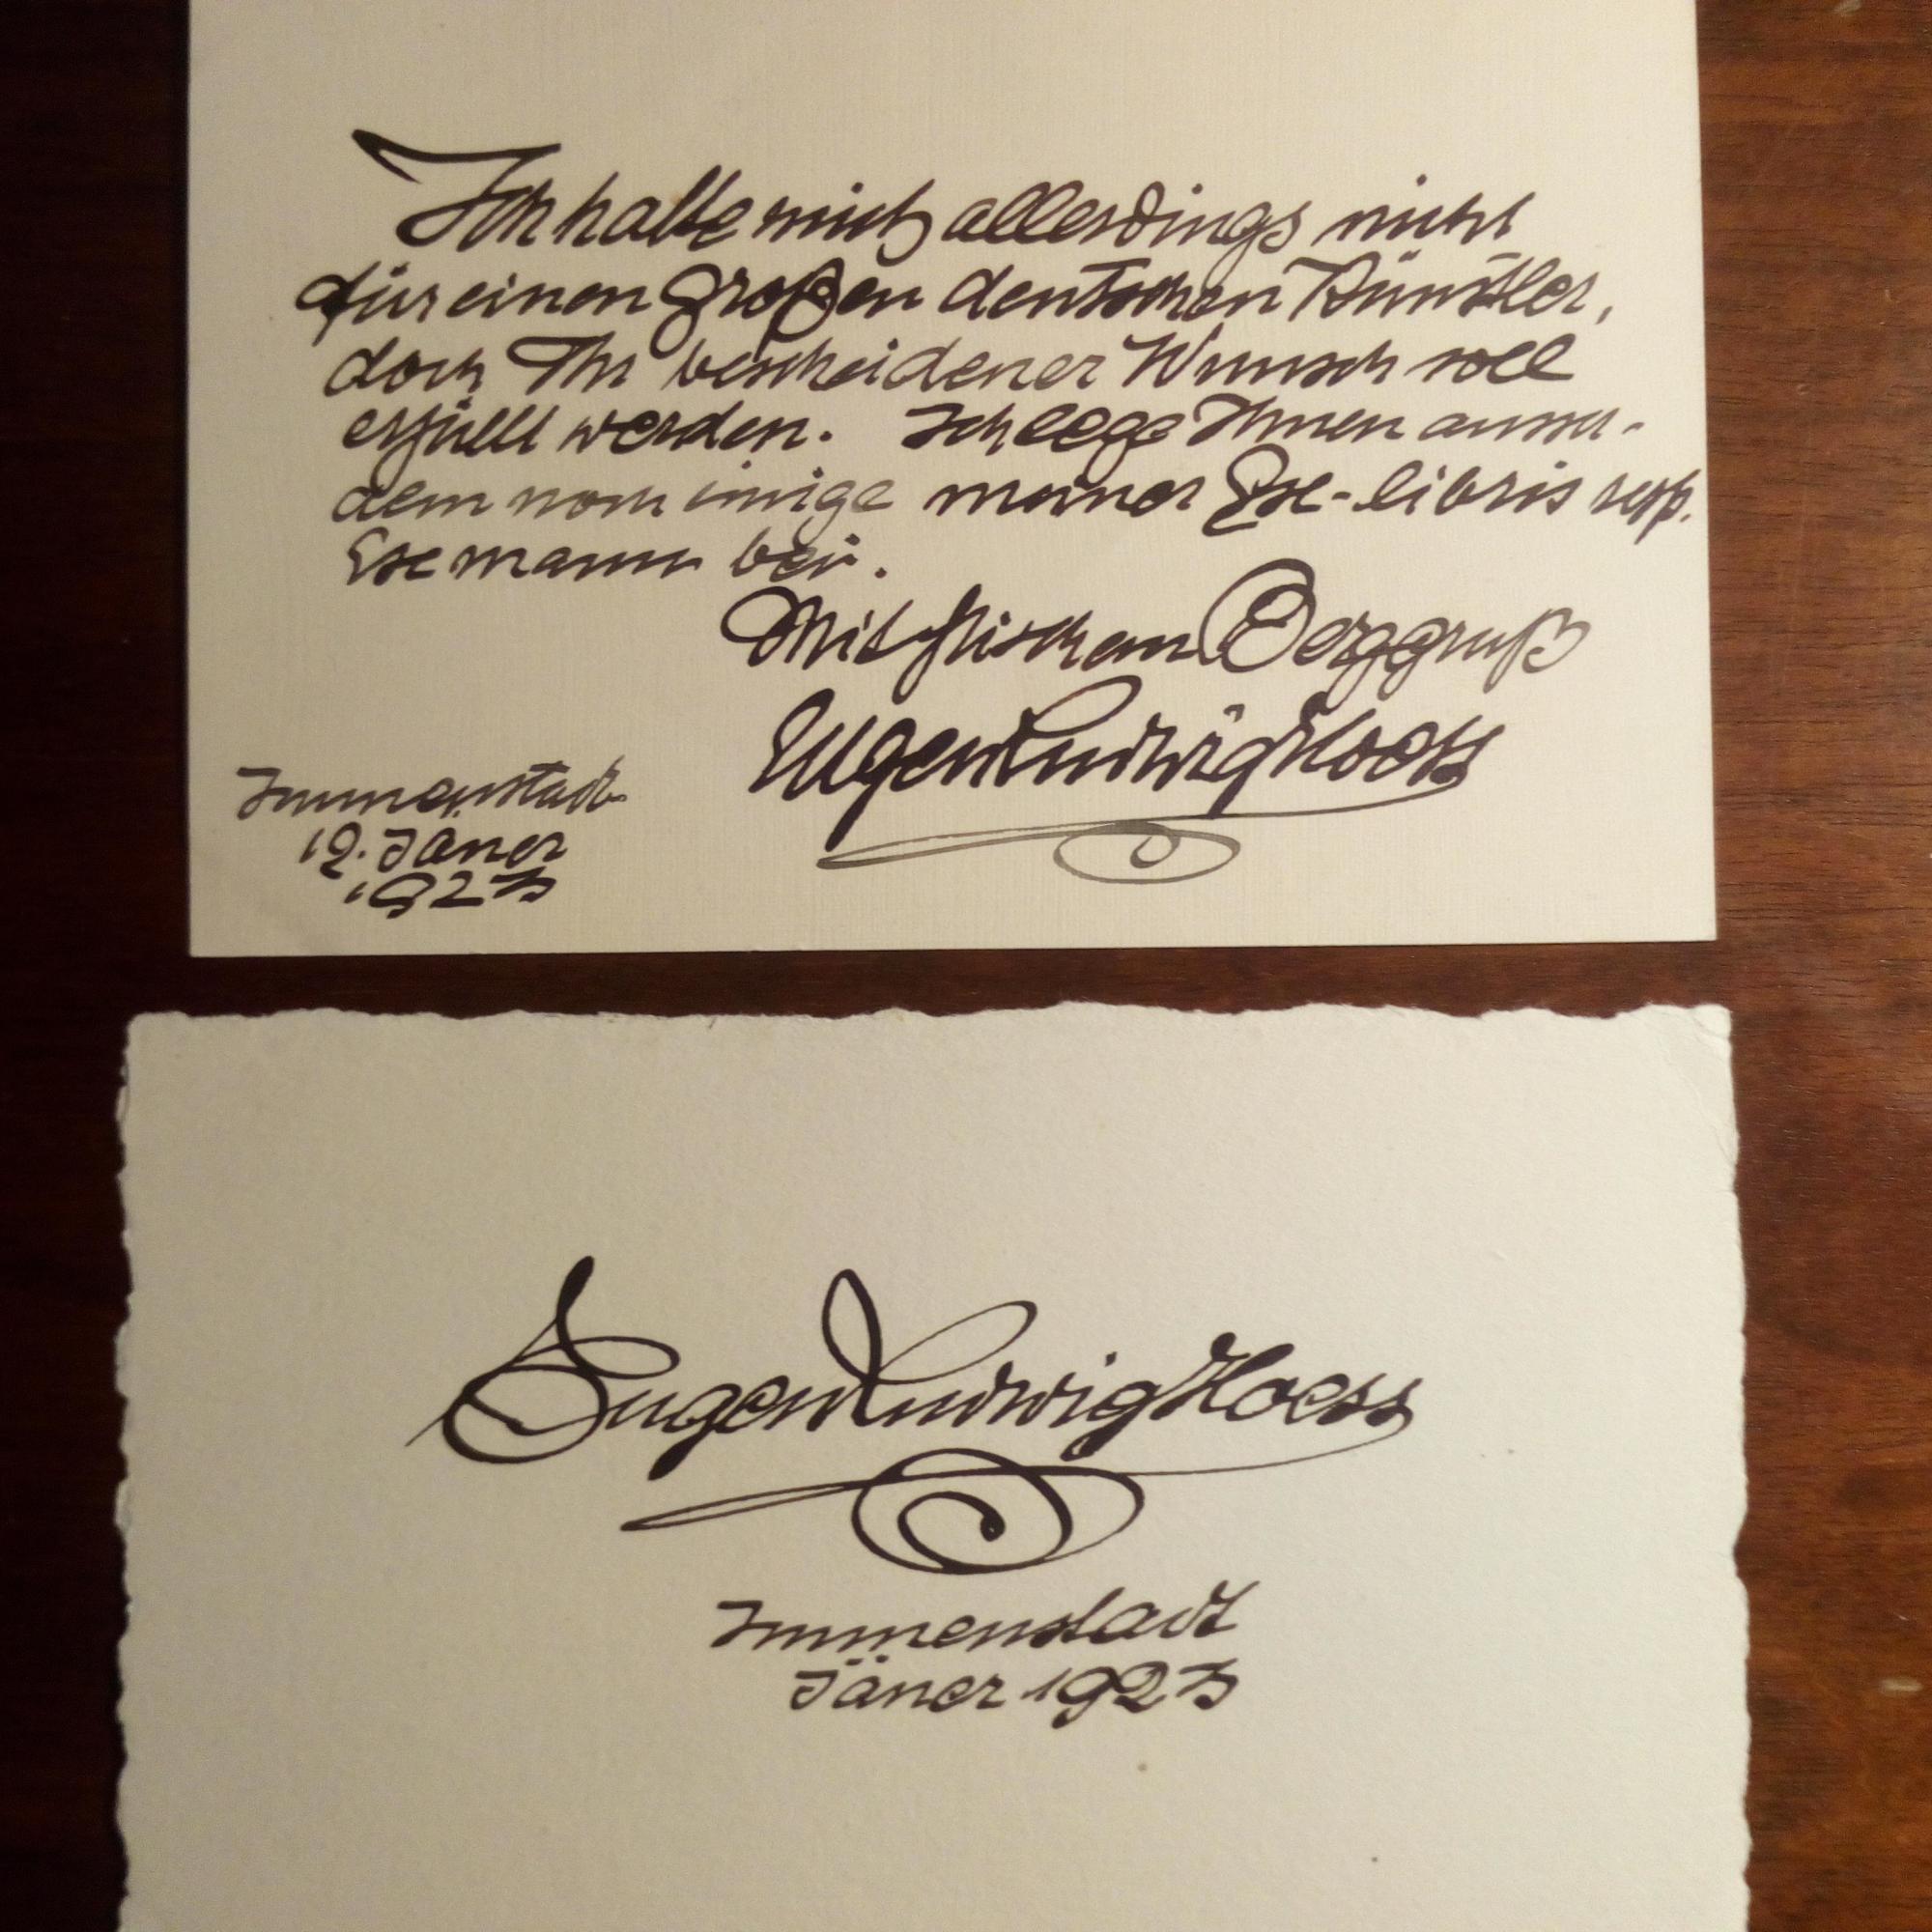 Ich halte mich allerdings nicht
für einen großen deutschen Künstler,
doch Ihr bescheidener Wunsch soll
erfüllt werden. Ich lege Ihnen ausser-
dem noch einige meiner Exe-libris resp.
Exemann bei.
Mit frischem Berggruß
Eugen Ludwig Hoess
Immenstadt
12. Jäner
1923
Eugen Ludwig Hoess
Immenstadt
Jäner 1923